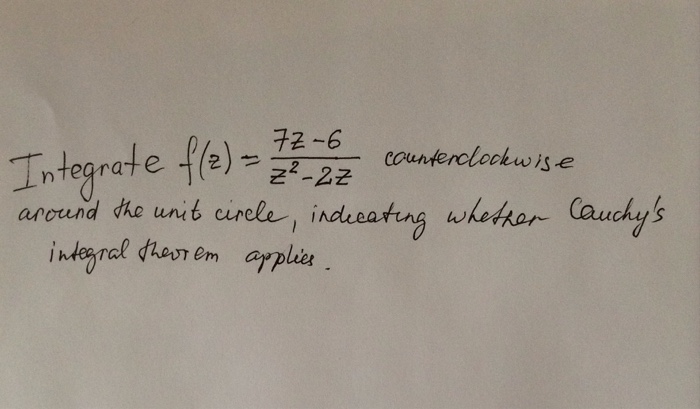 Integrate f(z) = (7z-6)/(z²-2z) counterclockwise
around the unit circle, indicating whether Cauchy's
integral theorem applies.